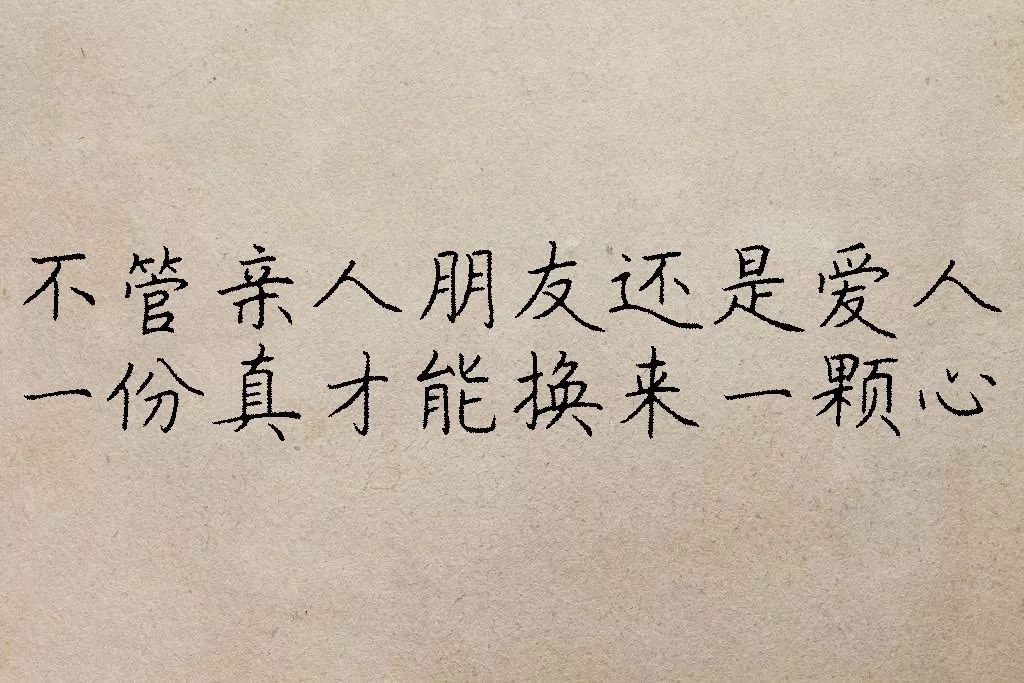 不管亲人朋友还是爱人
一份真才能换来一颗心